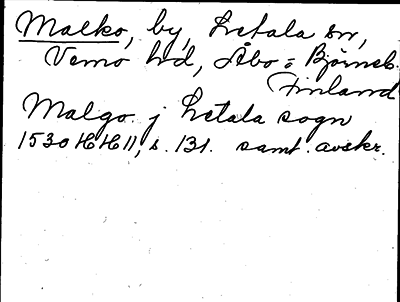 Malko, by, Letala sn,
Vemo hd, Åbo = Björneb.
Finland
Malgo j Letala sogn
1530 HH II, s. 131. samt. avskr.